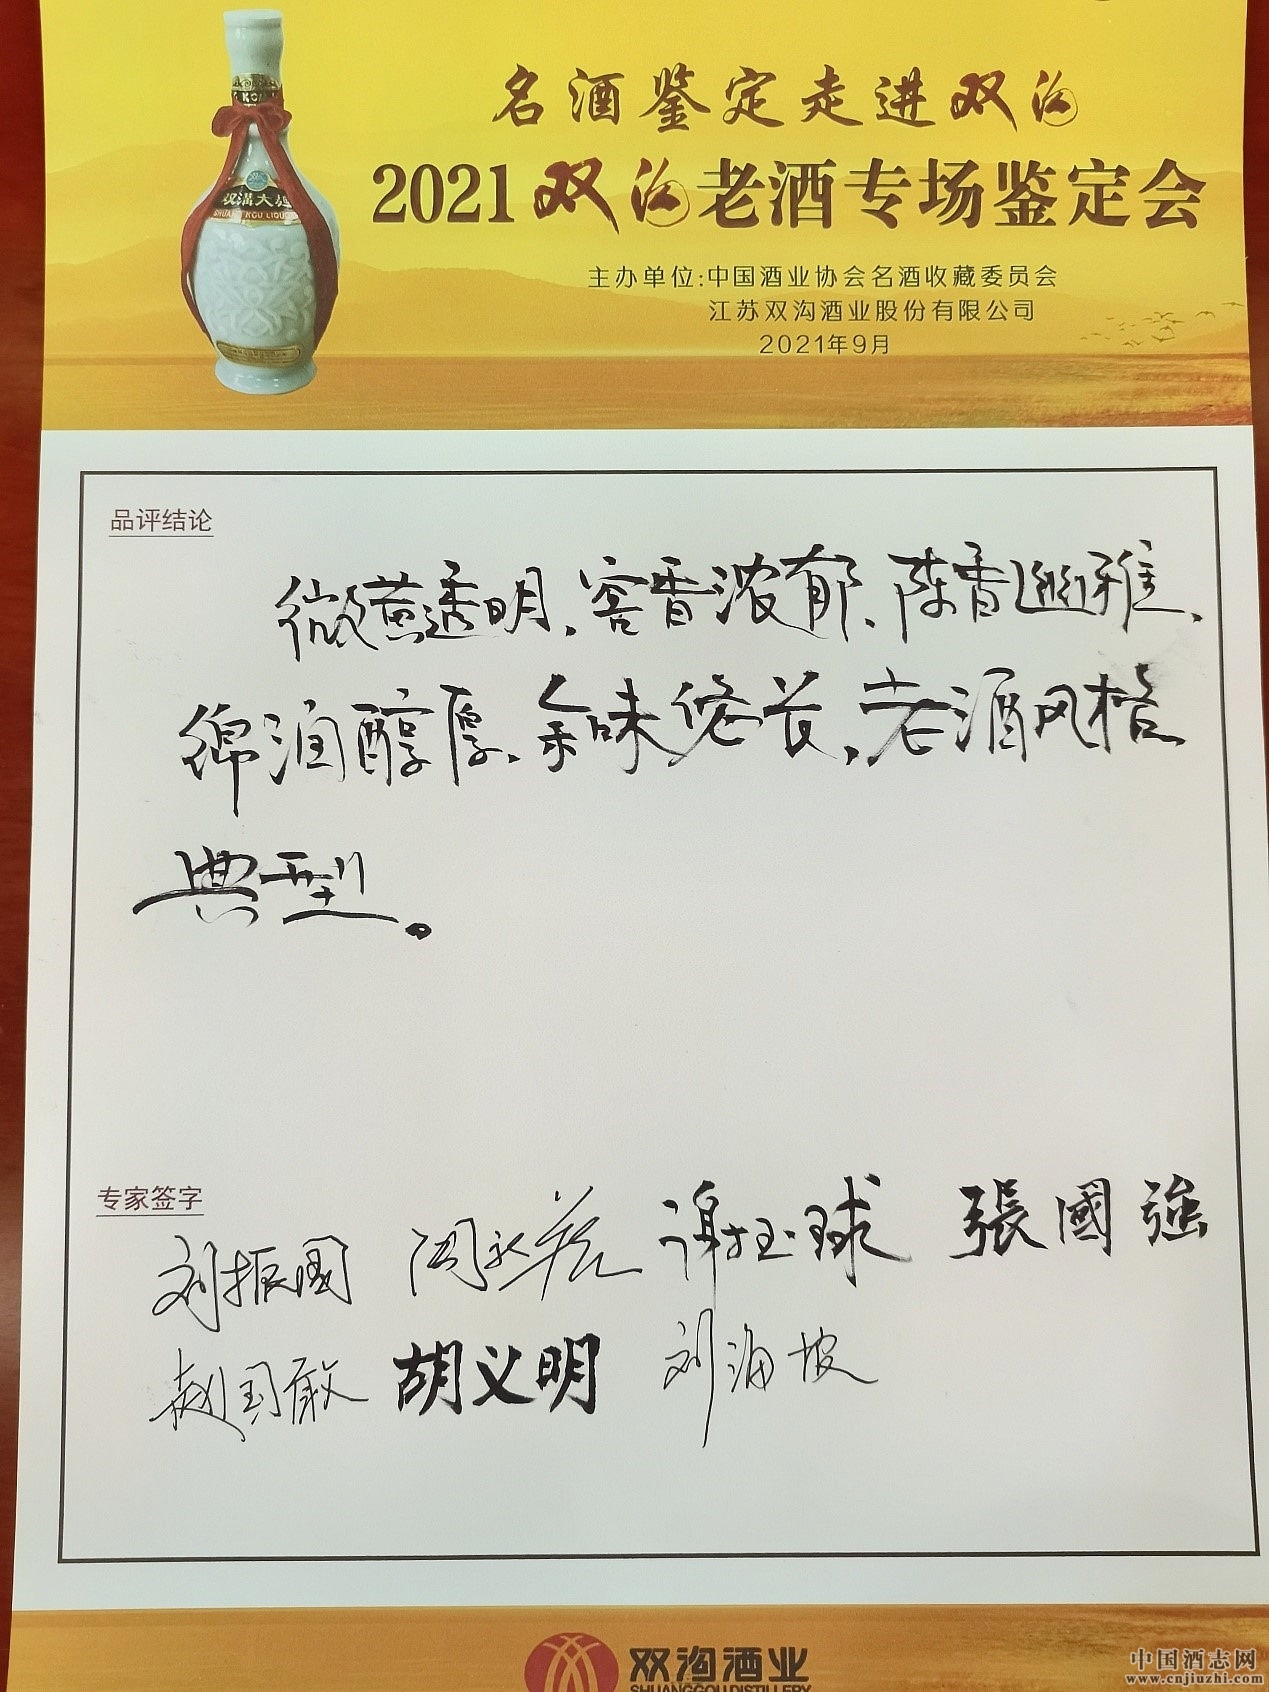 名酒鉴定走进双沟
2021双沟老酒专场鉴定会
主办单位:中国酒业协会名酒收藏委员会
江苏双沟酒业股份有限公司
2021年9月
双沟大曲
SHUANG KOU LIQUOR
品评结论
微黄透明、窖香浓郁、陈香幽雅、
绵润醇厚、余味悠长,老酒风格
典型。
专家签字
刘振国 谢玉球 張國強
赵国敢 胡义明 刘海坡
双沟酒业
SHUANGGOU DISTILLERY
中国酒志网
www.cnjiuzhi.com